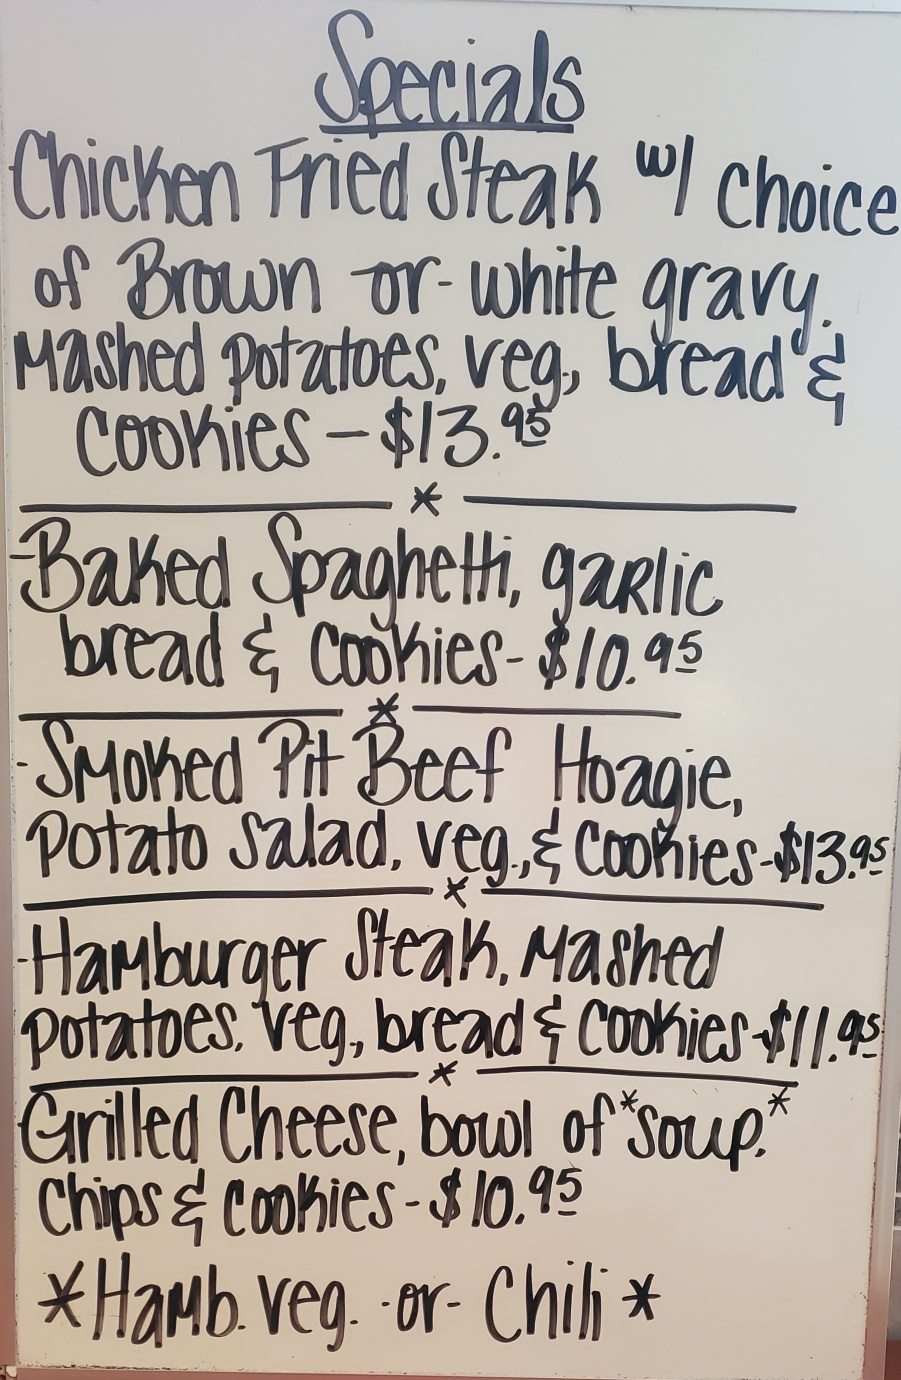 Specials
Chicken Fried Steak w/ choice
of Brown or- white gravy.
Mashed potatoes, veg., bread &
cookies - $13.95
*
-Baked Spaghetti, garlic
bread & cookies- $10.95
*
-Smoked Pit Beef Hoagie,
potato salad, veg., & cookies-$13.95
*
-Hamburger Steak, Mashed
potatoes, veg., bread & cookies-$11.95
*
Grilled Cheese, bowl of *soup,*
chips & cookies-$10.95
*Hamb. veg. -or- Chili *